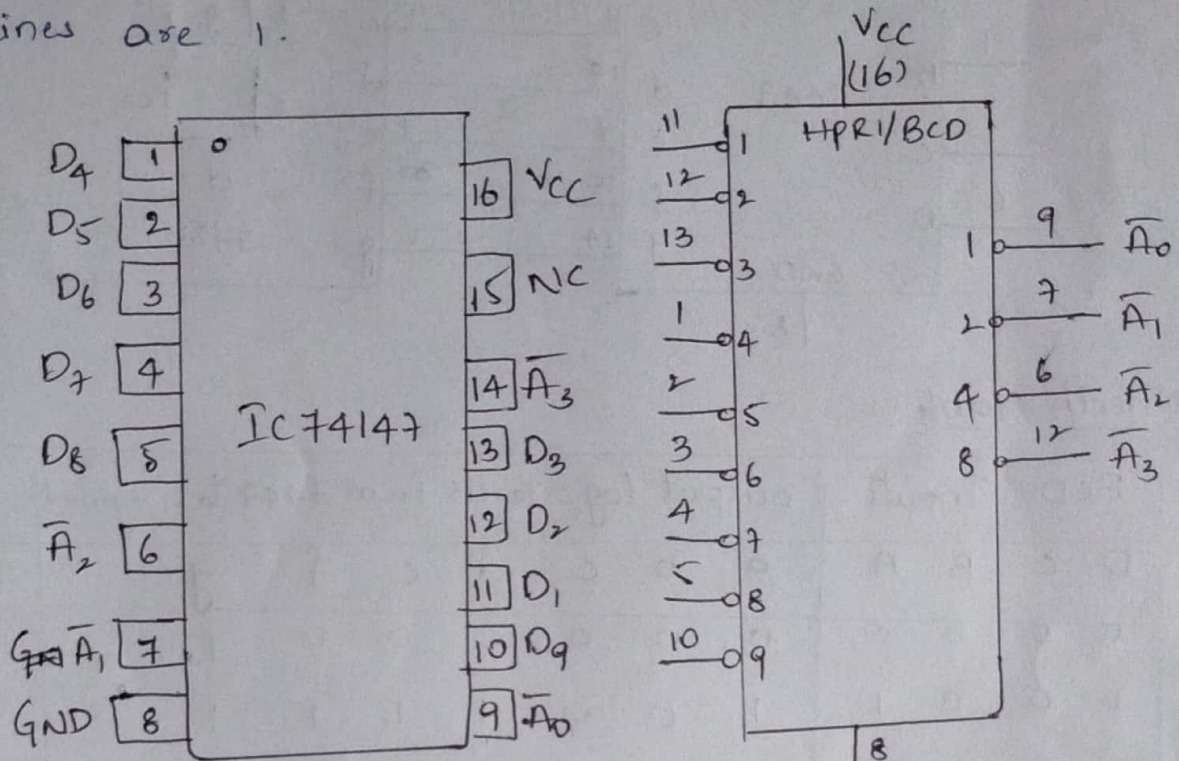 ines are 1.
D4 1
D5 2
D6 3
D7 4
D8 5
A̅2 6
A̅1 7
GND 8
IC74147
16 VCC
15 NC
14 A̅3
13 D3
12 D2
11 D1
10 D9
9 A̅0
Vcc
(16)
HPRI/BCD
11 1
12 2
13 3
1 4
2 5
3 6
4 7
5 8
10 9
1 9 A̅0
2 7 A̅1
4 6 A̅2
8 12 A̅3
8